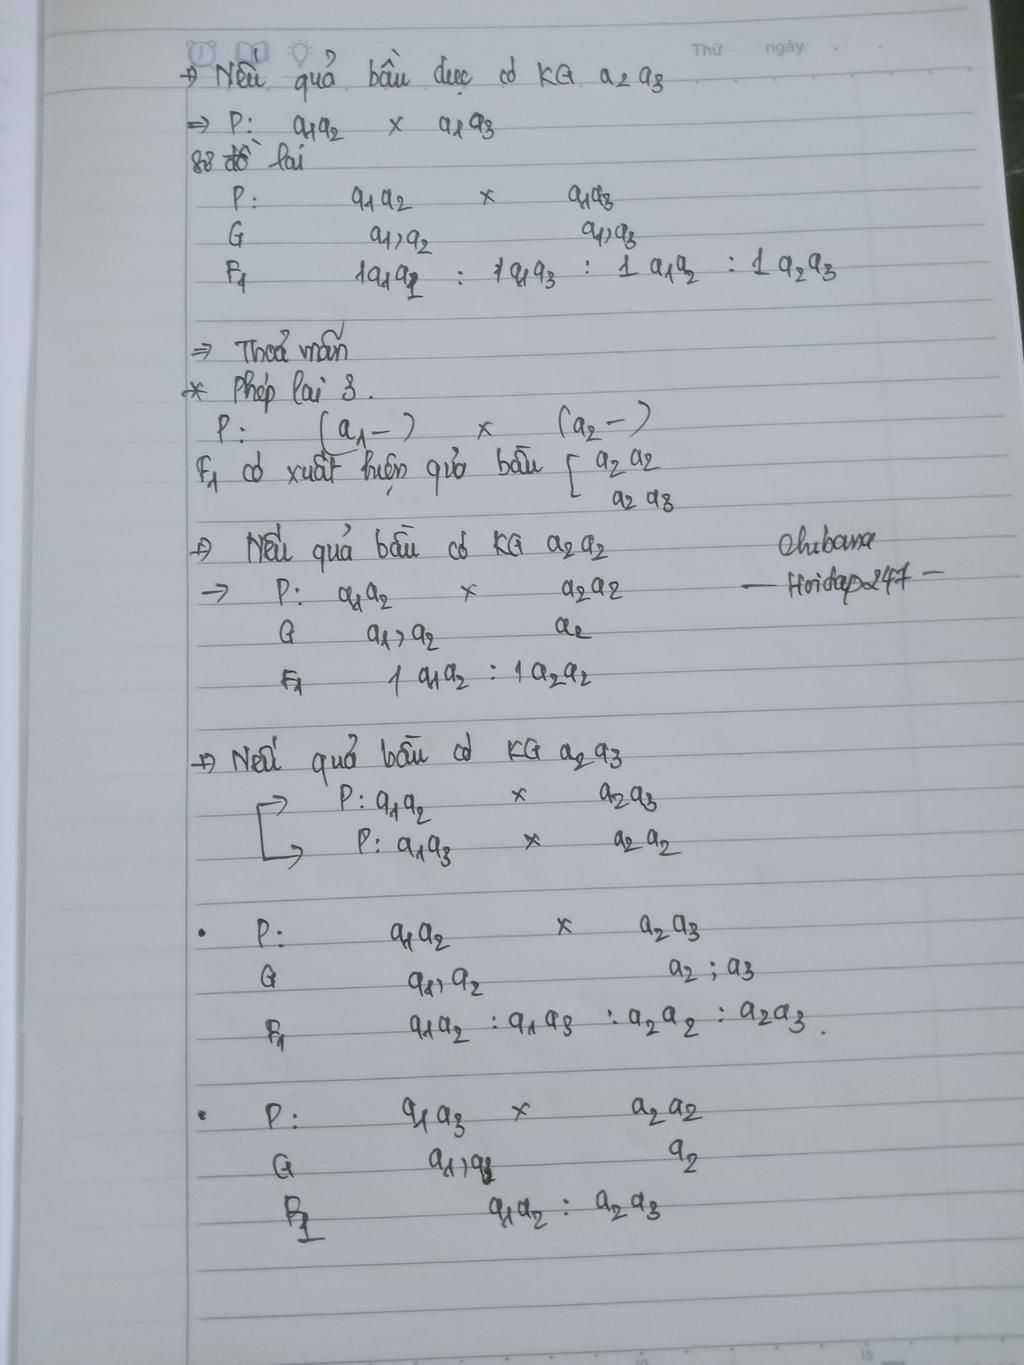 Thứ ngày
→ Nếu quả bầu dục có KG a2 a3
⇒ P: a1a2 x a1a3
Sơ đồ lai
P: a1a2 x a1a3
G a1, a2 a1, a3
F1 1a1a1 : 1a1a3 : 1 a1a2 : 1 a2a3
⇒ Thoả mãn
* Phép lai 3.
P: (a1 –) x (a2 –)
F1 có xuất hiện quả bầu [ a2 a2
a2 a3
→ Nếu quả bầu có KG a2a2
→ P: a1a2 x a2a2
G a1, a2 a2
F1 1 a1a2 : 1 a2a2
chibana
— Hoidap247 —
→ Nếu quả bầu có KG a2a3
→ P: a1a2 x a2a3
→ P: a1a3 x a2a2
• P: a1a2 x a2a3
G a1, a2 a2 ; a3
F1 a1a2 : a1a3 : a2a2 : a2a3.
• P: a1a3 x a2a2
G a1, a3 a2
F1 a1a2 : a2a3